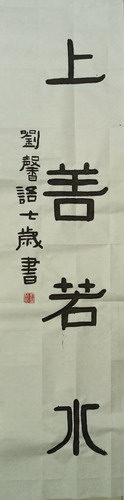 上善若水
劉馨語七歲書